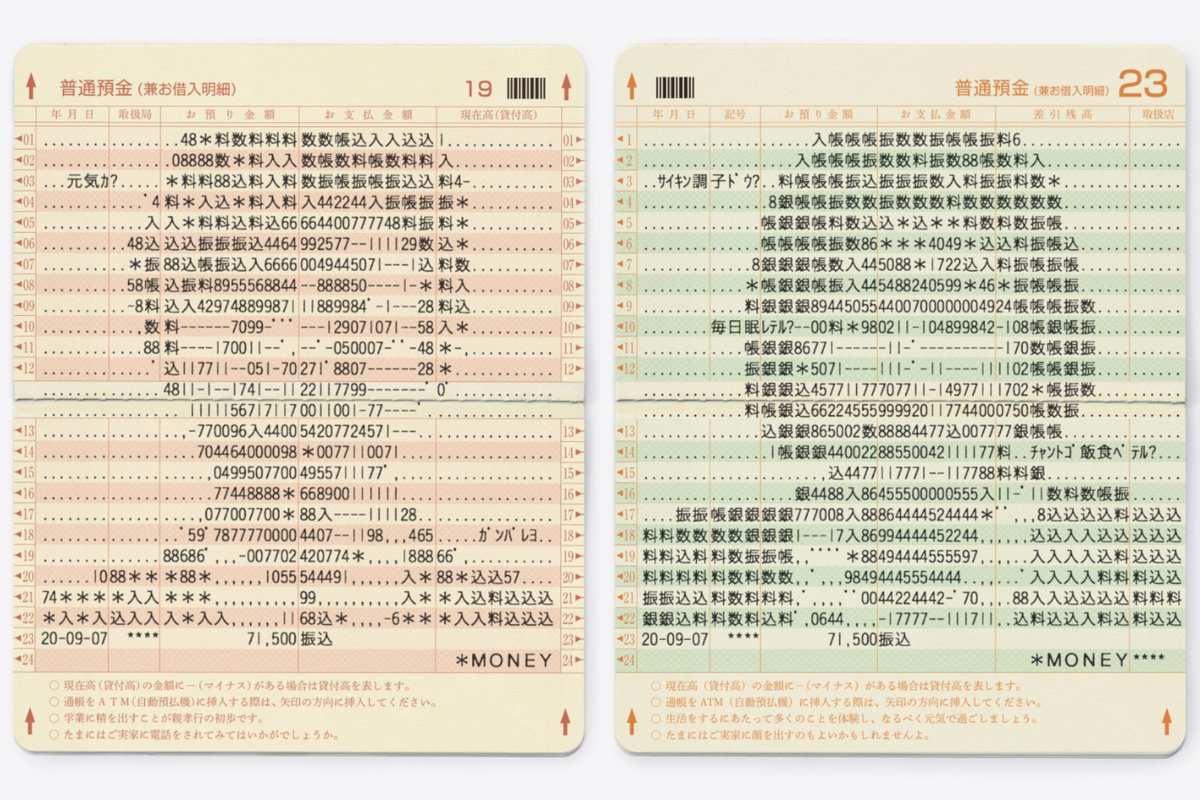 普通預金(兼お借入明細) 19
年月日 取扱局 お預り金額 お支払金額 現在高(貸付高)
01 ..................48*料数料料料 数数帳込入入込込 |.............. 01
02 ..................08888数*料入入 数帳数料帳数料料 入.............. 02
03 ...元気カ?.....*料料88込料入料 数振帳振帳振込込 料4-............ 03
04 ゜4 料*入込*料入料 入442244入振帳振 振*............ 04
05 入 入*料料込料込66 664400777748料振 料*............ 05
06 48込 込込振振振込4464 992577--||||29数 込*............ 06
07 *振 88込帳振込入6666 004944507|---|込 料数............ 07
08 58帳 込振料8955568844 --888850----|-* 料入............ 08
09 -8料 込入42974889987| |889984゛-|---28 料込............ 09
10 数 料------7099-゛゛゛ ---|2907|07|--58 入*............ 10
11 88 料----|700||--゛, --゛-050007-゛゛-48 *-,............ 11
12 ゜ 込||77||--05|-70 27|゛8807------28 *............ 12
48||-|--|74|--|| 22||7799-------゛ 0゛
|||||567|7||7 00||00|-77----゛
13 ,-770096入4400 5420772457|--- 13
14 704464000098 *0077||007| 14
15 0499507700 49557|||77゛ 15
16 77448888* 668900|||||| 16
17 ,077007700* 88入----||||28 17
18 ゛59゛7877770000 4407--||98,,,465 ......ガンバレヨ. 18
19 88686゛,,-007702 420774*,....|888 66゛, 19
20 |088** *88*,,,,,,|055 54449|,......入* 88*込込57.... 20
21 74****入入 ***,,,,,,,,,, 99,..........入* *入込料込込込 21
22 *入*入込入入 入*入入,,,,,,,|| 68込*,....-6** *入入料込込込 22
23 20-09-07 **** 71,500 振込 23
24 *MONEY 24
○ 現在高(貸付高)の金額に−(マイナス)がある場合は貸付高を表します。
○ 通帳をATM(自動預払機)に挿入する際は、矢印の方向に挿入してください。
○ 学業に精を出すことが親孝行の初歩です。
○ たまにはご実家に電話をされてみてはいかがでしょうか。
普通預金(兼お借入明細) 23
年月日 記号 お預り金額 お支払金額 差引残高 取扱店
1 入帳帳帳振数数振帳帳振料6
2 入帳帳振帳振数数料振数88帳数料入
3 ..サイキン調子ドウ?..料帳帳帳振込振振振数入料振振料料数*
4 8銀帳帳振数数振数数数料数数数数数数
5 帳銀銀帳料数込込*込**料数料数振帳
6 帳帳帳帳振数86***4049*込込料振帳込
7 8銀銀銀帳数入445088*|722込入料振帳振帳
8 *帳銀銀帳振入445488240599*46*振帳帳振
9 料銀銀銀89445055440070000000049​24帳帳振帳振数
10 毎日眠レテル?--00料*9802||-|04899842-|08帳銀帳振
11 帳銀銀867​7|---------||-゛----------|70数帳銀振
12 振銀銀*507|----|||-゛-||----||||02帳帳銀振
料銀銀込4577||77707​7||-|4977|||702*帳振数
料帳銀込66224555999920||7744000750帳数振
13 込銀銀865002数88884477込007777銀帳帳
14 |帳銀銀44002288550042||||77料..チャントゴ飯食ベテル?...
15 込4477||777|--||7788料料銀
16 銀4488入86455500000555入||-゛||数料数帳振
17 ....振振帳銀銀銀銀777008入8864444524444*゛゛,,,8込込込込料込込込
18 料料数数数数銀銀|---|7入86994444452244,,,,,,込込入入込込込込込込
19 料料込料料数振振帳,゛゛゛゛*88494444555597,....入入入入込料料込込
20 料料料料料数料数数,゛,゛,98494445554444,......゛入入入入料料料込込
21 振振込込料数料料料,゛,,,,゛゛0044224442-゛70,,,88入入込込込込料料料
22 銀銀込料料数料込料゛,0644,,,,-|7777---|||7||,,込込入入込料込料込込
23 20-09-07 **** 71,500振込
24 *MONEY****
○ 現在高(貸付高)の金額に−(マイナス)がある場合は貸付高を表します。
○ 通帳をATM(自動預払機)に挿入する際は、矢印の方向に挿入してください。
○ 生活をするにあたって多くのことを体験し、なるべく元気で過ごしましょう。
○ たまにはご実家に顔を出すのもよいかもしれませんよ。